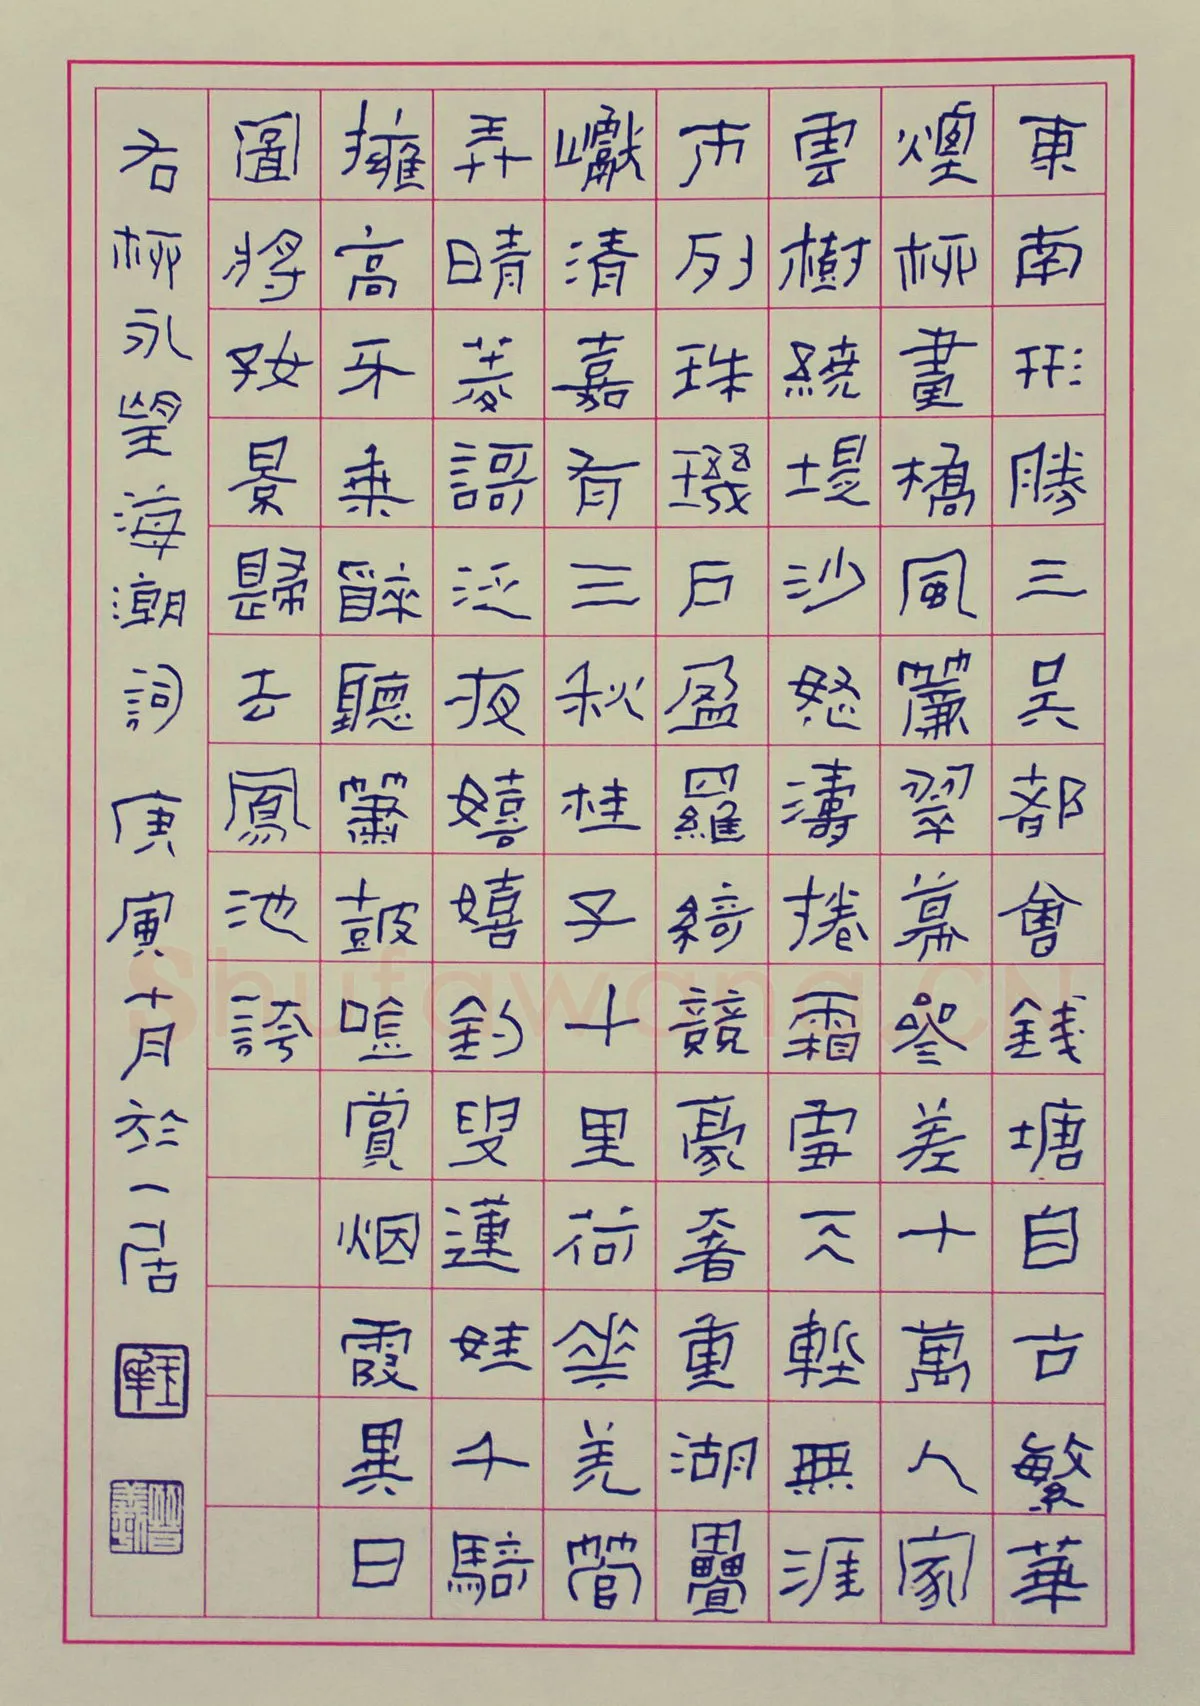 東南形勝三吳都會錢塘自古繁華
煙柳畫橋風簾翠幕參差十萬人家
雲樹繞堤沙怒濤捲霜雪天塹無涯
市列珠璣戶盈羅綺競豪奢重湖疊
巘清嘉有三秋桂子十里荷花羌管
弄晴菱謌泛夜嬉嬉釣叟蓮娃千騎
擁高牙乘醉聽簫鼓吟賞烟霞異日
圖將好景歸去鳳池誇
右柳永望海潮詞 庚寅十月於一居
Shufawang.CN